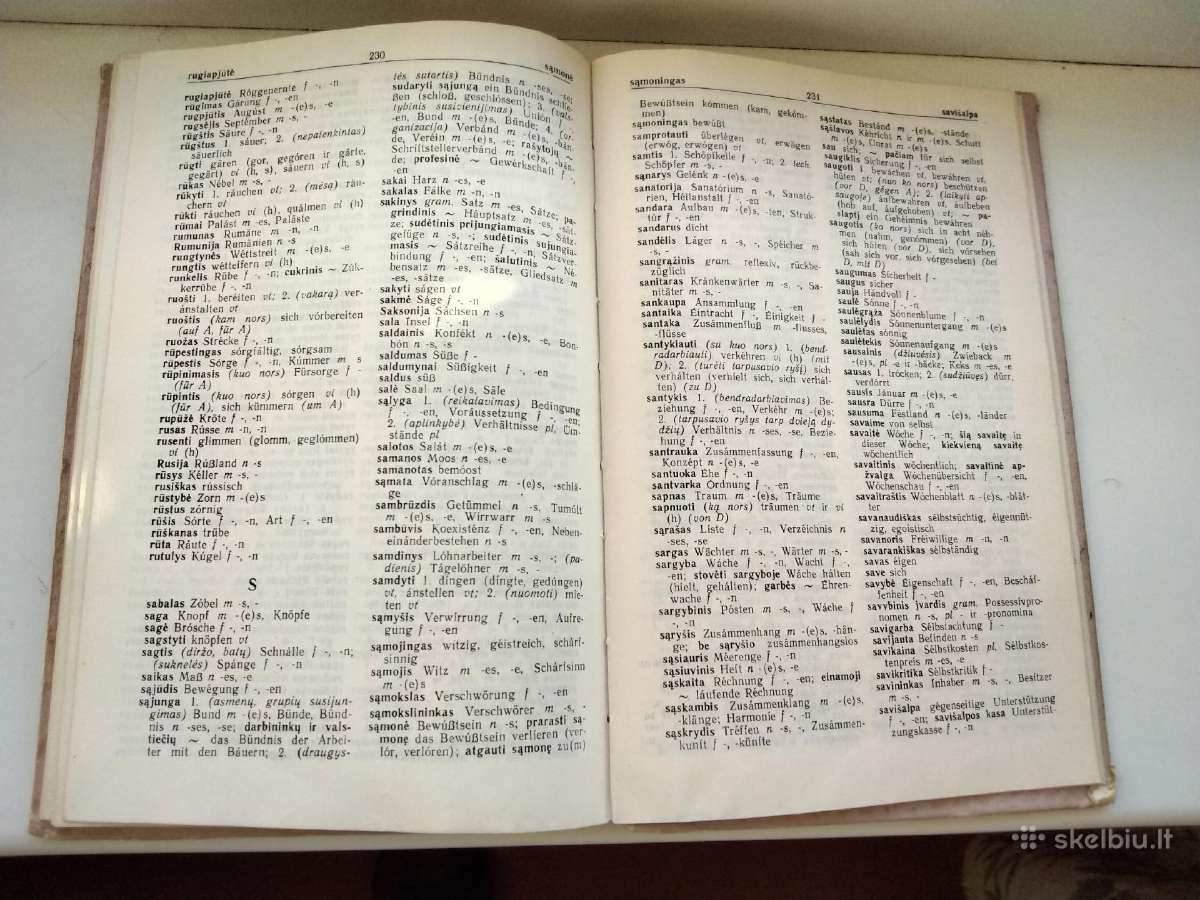 230
rugiapjūtė
sąmonė
rugiapjūtė Róggenernte f -, -n
rūgimas Gärung f -, -en
rugpjūtis August m -(e)s, -e
rugsėjis September m -s, -
rūgštis Säure f -, -n
rūgštus 1. sáuer; 2. (nepatenkintas)
säuerlich
rūgti gären (gor, gegóren ir gärte,
gegärt) vi (h, s), säuern vi (h, s)
rūkas Nébel m -s, -
rūkyti 1. ráuchen vt; 2. (mėsą) räu-
chern vt
rūkti ráuchen vi (h), quálmen vi (h)
rūmai Palást m -es, Paläste
rumunas Rumäne m -n, -n
Rumunija Rumänien n -s
rungtynės Wéttstreit m -(e)s, -e
rungtis wétteifern vi (h)
runkelis Rübe f -, -n; cukrinis ~ Zúk-
kerrübe f -, -n
ruošti 1. beréiten vt; 2. (vakarą) ver-
ánstalten vt
ruoštis (kam nors) sich vórbereiten
(auf A, für A)
ruožas Strécke f -, -n
rūpestingas sórgfältig, sórgsam
rūpestis Sórge f -, -n, Kúmmer m -s
rūpinimasis (kuo nors) Fürsorge f -
(für A)
rūpintis (kuo nors) sórgen vi (h)
(für A), sich kümmern (um A)
rupūžė Kröte f -, -n
rusas Rússe m -n, -n
rusenti glimmen (glomm, geglómmen)
vi (h)
Rusija Rúßland n -s
rūsys Kéller m -s, -
rusiškas rússisch
rūstybė Zorn m -(e)s
rūstus zórnig
rūšis Sórte f -, -n, Art f -, -en
rūškanas trübe
rūta Ráute f -, -n
rutulys Kúgel f -, -n
S
sabalas Zóbel m -s, -
saga Knopf m -(e)s, Knöpfe
sagė Brósche f -, -n
sagstyti knöpfen vt
sagtis (diržo, batų) Schnálle f -, -n;
(suknelės) Spánge f -, -n
saikas Maß n -es, -e
sąjūdis Bewégung f -, -en
sąjunga 1. (asmenų, grupių susijun-
gimas) Bund m -(e)s, Bünde, Bünd-
nis n -ses, -se; darbininkų ir vals-
tiečių ~ das Bündnis der Arbei-
ter mit den Báuern; 2. (draugys-
tės sutartis) Bündnis n -ses, -se;
sudaryti sąjungą ein Bündnis schlie-
ßen (schloß, geschlóssen); 3. (vals-
tybinis susivienijimas) Unión f -,
-en, Bund m -(e)s, Bünde; 4. (or-
ganizacija) Verbánd m -(e)s, -bän-
de, Veréin m -(e)s, -e; rašytojų ~
Schriftstellerverband m -(e)s, -bän-
de; profesinė ~ Gewérkschaft f -,
-en
sakai Harz n -es, -e
sakalas Fálke m -n, -n
sakinys gram. Satz m -es, Sätze; pa-
grindinis ~ Háuptsatz m -es, -sät-
ze; sudėtinis prijungiamasis ~ Sátz-
gefüge n -s, -; sudėtinis sujungia-
masis ~ Sátzreihe f -, -n, Sátzver-
bindung f -, -en; šalutinis ~ Né-
bensatz m -es, -sätze, Gliedsatz m
-es, -sätze
sakyti ságen vt
sakmė Ságe f -, -n
Saksonija Sáchsen n -s
sala Insel f -, -n
saldainis Konfékt n -(e)s, -e, Bon-
bón n -s, -s
saldumas Süße f -
saldumynai Süßigkeit f -, -en
saldus süß
salė Saal m -(e)s, Säle
sąlyga 1. (reikalavimas) Bedingung
f -, -en, Voráussetzung f -, -en;
2. (aplinkybė) Verhältnisse pl, Um-
stände pl
salotos Salát m -(e)s, -e
samanos Moos n -es, -e
samanotas bemóost
sąmata Vóranschlag m -(e)s, -schlä-
ge
sambrūzdis Getümmel n -s, Tumúlt
m -(e)s, -e, Wirrwarr m -s
sambūvis Koexisténz f -, -en, Neben-
einánderbestehen n -s
samdinys Lóhnarbeiter m -s, -; (pa-
dienis) Tágelöhner m -s, -
samdyti 1. díngen (díngte, gedúngen)
vt, ánstellen vt; 2. (nuomoti) mie-
ten vt
sąmyšis Verwirrung f -, -en, Aufre-
gung f -, -en
sąmojingas witzig, géistreich, schárf-
sinnig
sąmojis Witz m -es, -e, Schárfsinn
m -(e)s
sąmokslas Verschwörung f -, -en
sąmokslininkas Verschwörer m -s, -
sąmonė Bewúßtsein n -s; prarasti są-
monę das Bewúßtsein verlieren (ver-
lór, verlóren); atgauti sąmonę zu(m)
sąmoningas
231
savišalpa
Bewúßtsein kómmen (kam, gekóm-
men)
sąmoningas bewúßt
samprotauti überlégen vt, erwägen
(erwóg, erwógen) vt
samtis 1. Schöpfkelle f -, -n; 2. tech.
Schöpfer m -s, -
sąnarys Gelénk n -(e)s, -e
sanatorija Sanatórium n -s, Sanató-
rien, Héilanstalt f -, -en
sandara Aufbau m -(e)s, -ten, Struk-
túr f -, -en
sandarus dicht
sandėlis Láger n -s, -, Spéicher m
-s, -
sangrąžinis gram. reflexiv, rückbe-
züglich
sanitaras Kránkenwärter m -s, -, Sa-
nitäter m -s, -
sankaupa Ansammlung f -, -en
santaika Eintracht f -, Einigkeit f -
santaka Zusámmenfluß m -flusses,
-flüsse
santykiauti (su kuo nors) 1. (bend-
radarbiauti) verkéhren vi (h) (mit
D); 2. (turėti tarpusavio ryšį) sich
verhálten (verhielt sich, sich verhál-
ten) (zu D)
santykis 1. (bendradarbiavimas) Be-
ziehung f -, -en, Verkéhr m -(e)s;
2. (tarpusavio ryšys tarp dviejų dy-
džių) Verhältnis n -ses, -se, Bezie-
hung f -, -en
santrauka Zusámmenfassung f -, -en,
Konzépt n -(e)s, -e
santuoka Ehe f -, -n
santvarka Ordnung f -, -en
sapnas Traum m -(e)s, Träume
sapnuoti (ką nors) träumen vt ir vi
(h) (von D)
sąrašas Liste f -, -n, Verzéichnis n
-ses, -se
sargas Wächter m -s, -, Wärter m -s, -
sargyba Wáche f -, -n, Wacht f -,
-en; stovėti sargyboje Wáche hálten
(hielt, gehálten); garbės ~ Ehren-
wache f -, -n
sargybinis Pósten m -s, -, Wáche f
-, -n
sąryšis Zusámmenhang m -(e)s, -hän-
ge; be sąryšio zusámmenhangslos
sąsiauris Méerenge f -, -n
sąsiuvinis Heft n -(e)s, -e
sąskaita Réchnung f -, -en; einamoji
~ láufende Réchnung
sąskambis Zusámmenklang m -(e)s,
-klänge; Harmonie f -, -n
sąskrydis Tréffen n -s, -, Zusámmen-
kunft f -, -künfte
sąstatas Bestánd m -(e)s, -stände
sąšlavos Kéhricht n ir m -(e)s, Schutt
m -(e)s, Unrat m -(e)s
sau sich, ~ pačiam für sich selbst
saugiklis Sícherung f -, -en
saugoti 1. bewáchen vt, bewáhren vt,
hüten vt; (nuo ko nors) beschützen
(vor D, gégen A); 2. (laikyti ap-
saugoje) áufbewahren vt, áufheben
(hob auf, áufgehoben) vt; ~ pa-
slaptį ein Gehéimnis bewáhren
saugotis (ko nors) sich in acht néh-
men (nahm, genómmen) (vor D),
sich hüten (vor D), sich vórsehen
(sah sich vor, sich vórgesehen) (bei
D, mit D)
saugumas Sícherheit f -
saugus sicher
sauja Hándvoll f -
saulė Sónne f -, -n
saulėgrąža Sónnenblume f -, -n
saulėlydis Sónnenuntergang m -(e)s
saulėtas sónnig
saulėtekis Sónnenaufgang m -(e)s
sausainis (džiuvėsis) Zwieback m
-(e)s, pl -e ir -bäcke; Keks m -es, -e
sausas 1. trócken; 2. (sudžiūvęs) dürr,
verdórrt
sausis Jánuar m -(e)s, -e
sausra Dürre f -, -n
sausuma Féstland n -(e)s, -länder
savaime von selbst
savaitė Wóche f -, -n; šią savaitę in
dieser Wóche; kiekvieną savaitę
wöchentlich
savaitinis wöchentlich; savaitinė ap-
žvalga Wóchenübersicht f -, -en,
Wóchenschau f -, -en
savaitraštis Wóchenblatt n -(e)s, -blät-
ter
savanaudiškas sélbstsüchtig, éigennüt-
zig, egoistisch
savanoris Fréiwillige m -n, -n
savarankiškas sélbständig
savas éigen
save sich
savybė Eigenschaft f -, -en, Bescháf-
fenheit f -, -en
savybinis įvardis gram. Possessivpro-
nomen n -s, pl - ir -pronomina
savigarba Sélbstachtung f -
savijauta Befinden n -s
savikaina Sélbstkosten pl, Sélbstkos-
tenpreis m -es, -e
savikritika Sélbstkritik f -
savininkas Inhaber m -s, -, Besitzer
m -s, -
savišalpa gégenseitige Unterstützung
f -, -en; savišalpos kasa Unterstüt-
zungskasse f -, -n
skelbiu.lt